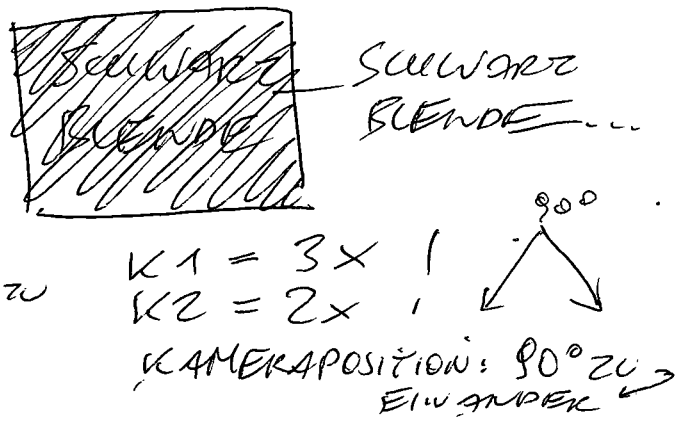 SCHWARZ
BLENDE
SCHWARZ
BLENDE...
90°
K1 = 3x !
ZU
K2 = 2x !
KAMERAPOSITION: 90° ZU
EINANDER